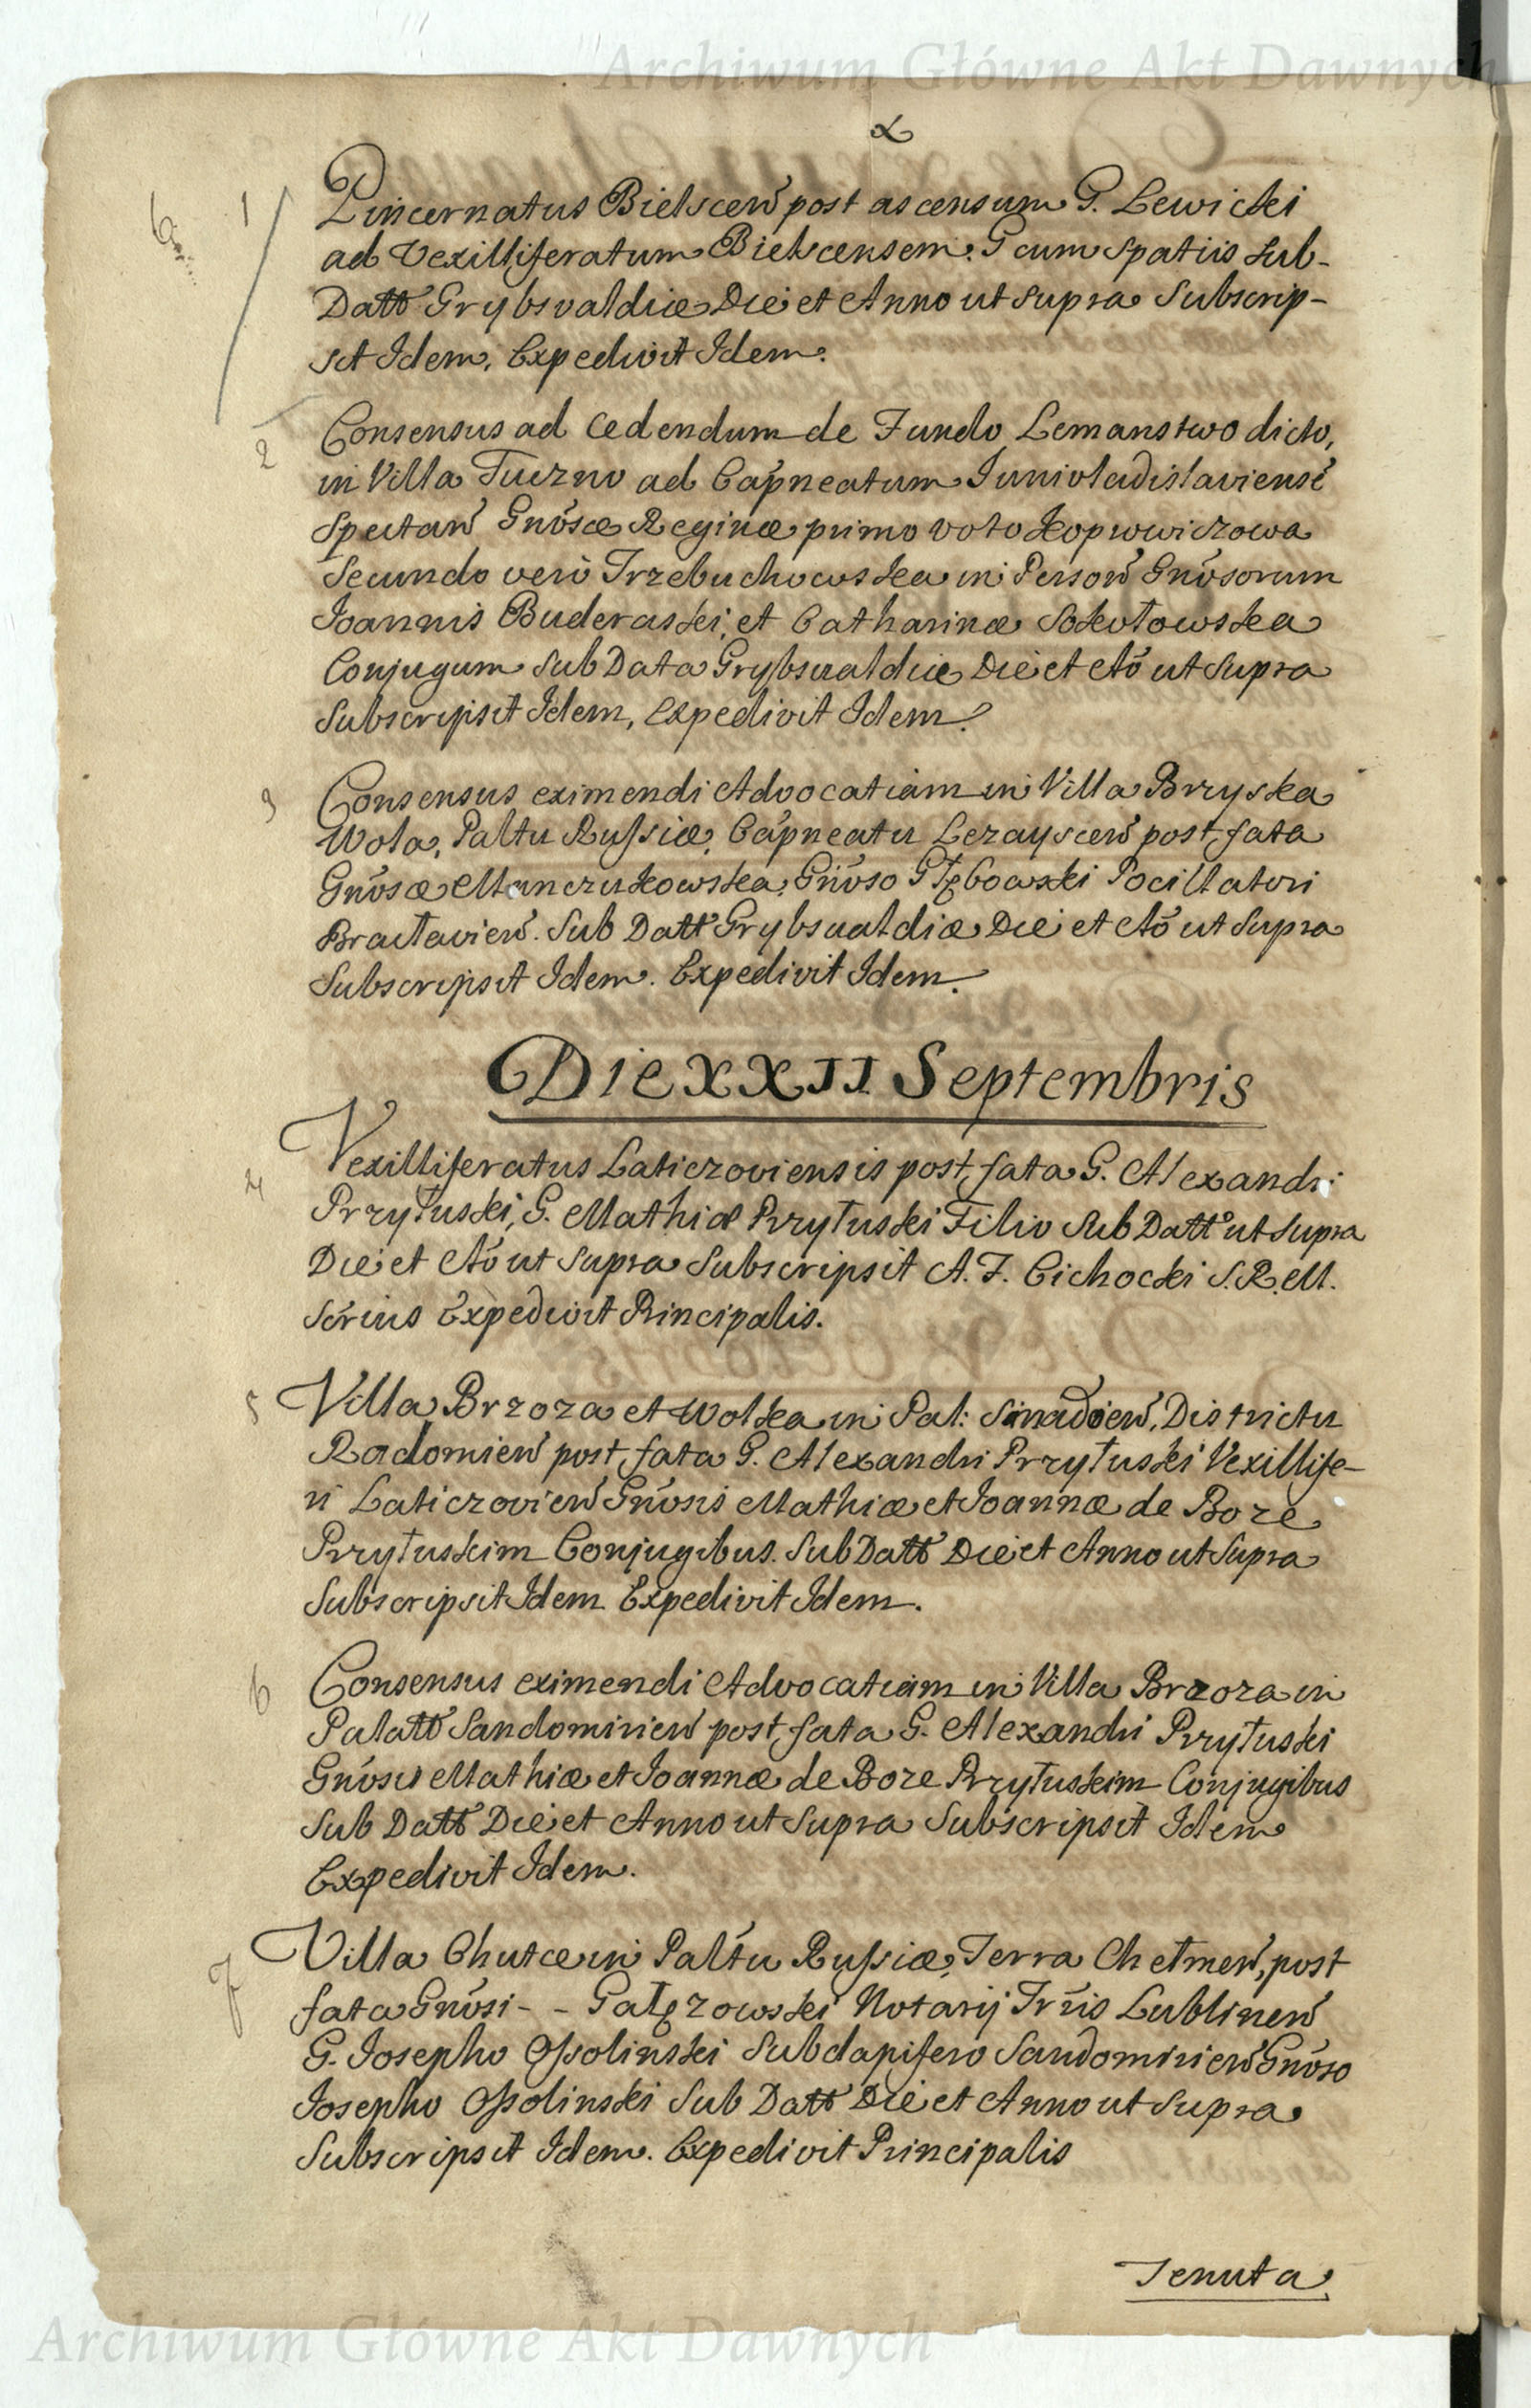 Archiwum Główne Akt Dawnych
1 Pincernatus Bielscen̄ post ascensum G. Lewicki
ad Vexilliferatum Bielscensem. G cum spatiis sub-
Datt Grybsvaldiæ Die et Anno ut supra Subscrip-
sit Idem. Expedivit Idem.
2 Consensus ad cedendum de Fundo Lemanstwo dicto,
in Villa Tuczno ad Cap̄neatum Junivladislaviensē
Spectan̄ Gnōsæ Reginæ primo voto Koprowiczowa
Secundo vero Trzebuchowska in Person̄ Gnōsorum
Joannis Buderaski, et Catharinæ Sokołowska
Conjugum sub Data Grybsualdiæ Die et Aō ut supra
Subscripsit Idem, Expedivit Idem.
3 Consensus eximendi Advocatiam in Villa Brzyska
Wola, Paltu Russiæ, Cap̄neatu Lezayscen̄ post fata
Gnōsæ Manczukowska, Gnōso Głębowski Pocillatori
Braclavien̄. Sub Datt Grybsualdiæ Die et Aō ut supra
Subscripsit Idem. Expedivit Idem.
Die XXII Septembris
4 Vexilliferatus Laticzoviensis post fata G. Alexandri
Przyłuski, G. Mathiæ Przyłuski Filio Sub Datt ut supra
Die et Aō ut supra Subscripsit A. J. Cichocki S. R. M.
Scrius Expedivit Principalis.
5 Villa Brzoza et Wolka in Pal: Districtu
Radomien̄ post fata G. Alexandri Przyłuski Vexillife-
ri Laticzovien̄ Gnōsis Mathiæ et Joannæ de Boze
Przyłuskim Conjugibus. Sub Datt Die et Anno ut supra
Subscripsit Idem Expedivit Idem.
6 Consensus eximendi Advocatiam in Villa Brzoza in
Palatt Sandomirien̄ post fata G. Alexandri Przyłuski
Gnōsis Mathiæ et Joannæ de Boze Przyłuskim Conjugibus
Sub Datt Die et Anno ut supra Subscripsit Idem
Expedivit Idem.
7 Villa Chutce in Paltu Russiæ, Terra Chełmen̄, post
fata Gnōsi - - Gałęzowski Notarij Trīis Lublinen̄
G. Josepho Ossolinski Subdapifero Sandomirien̄ Gnōso
Josepho Ossolinski Sub Datt Die et Anno ut supra
Subscripsit Idem. Expedivit Principalis
Tenuta
Archiwum Główne Akt Dawnych